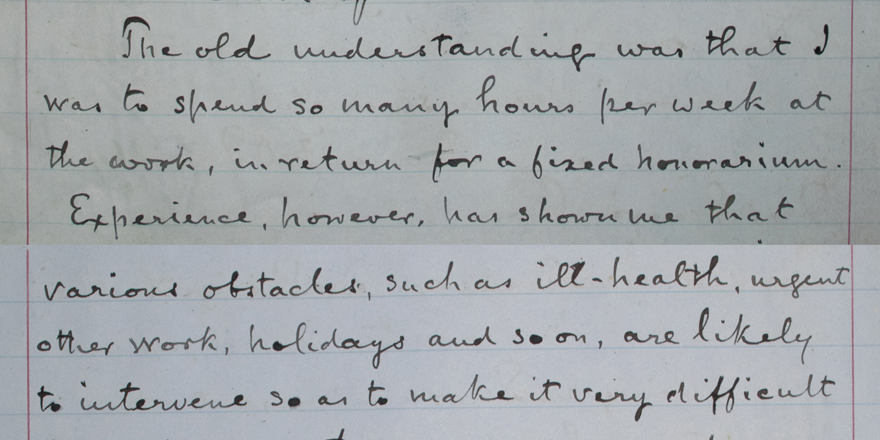 The old understanding was that I
was to spend so many hours per week at
the work, in return for a fixed honorarium.
Experience, however, has shown me that
various obstacles, such as ill-health, urgent
other work, holidays and so on, are likely
to intervene so as to make it very difficult